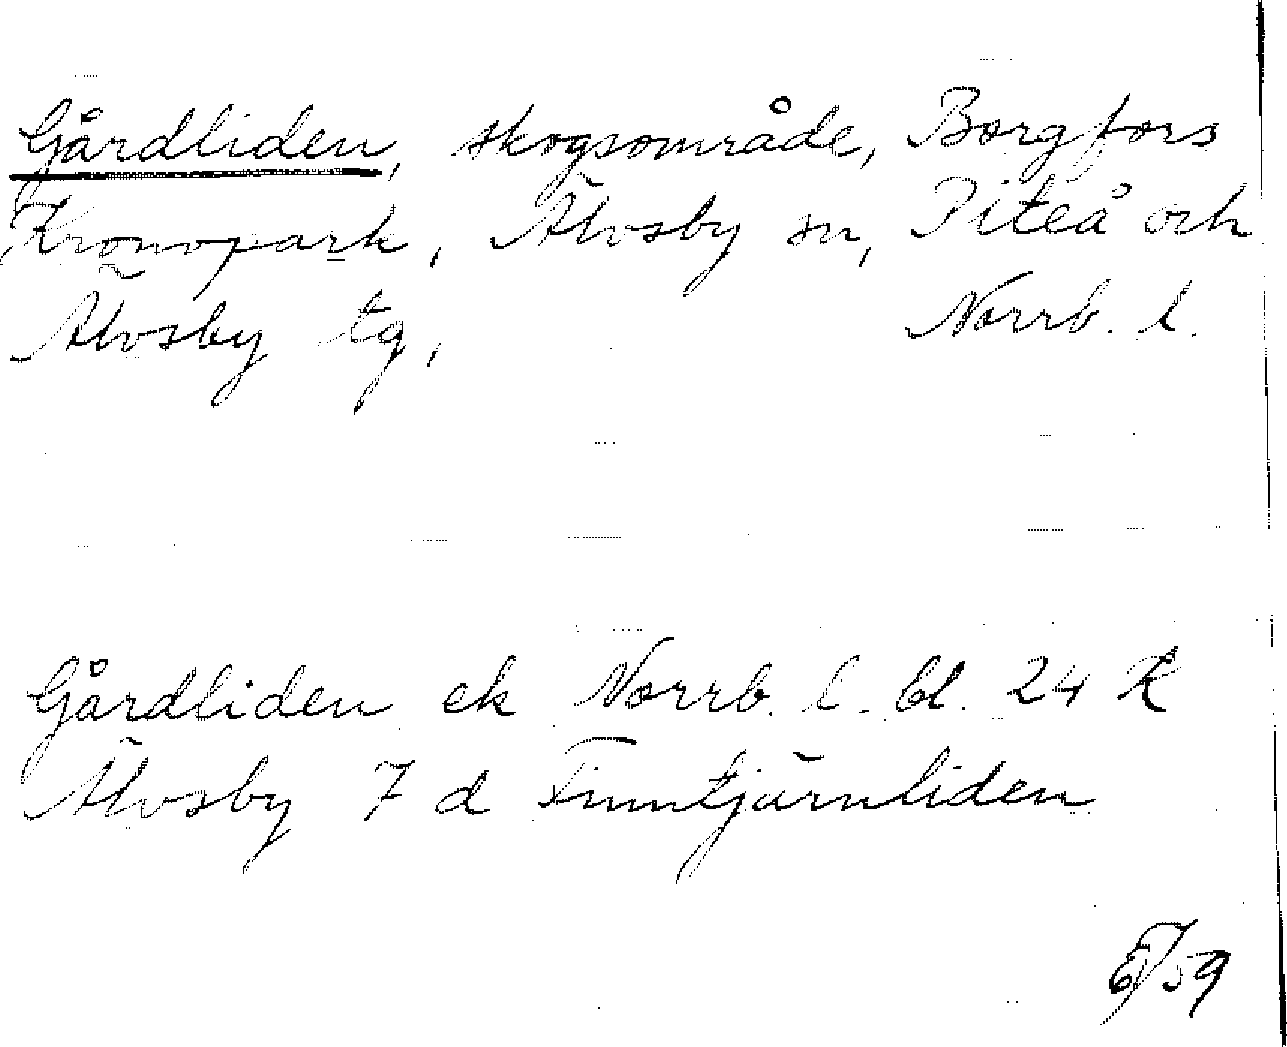 Gårdliden, skogsområde, Borgfors
Kronopark, Älvsby sn, Piteå och
Älvsby tg, Norrb. l.
Gårdliden ek Norrb. l. bl. 24 K
Älvsby 7 d Finntjärnliden
59